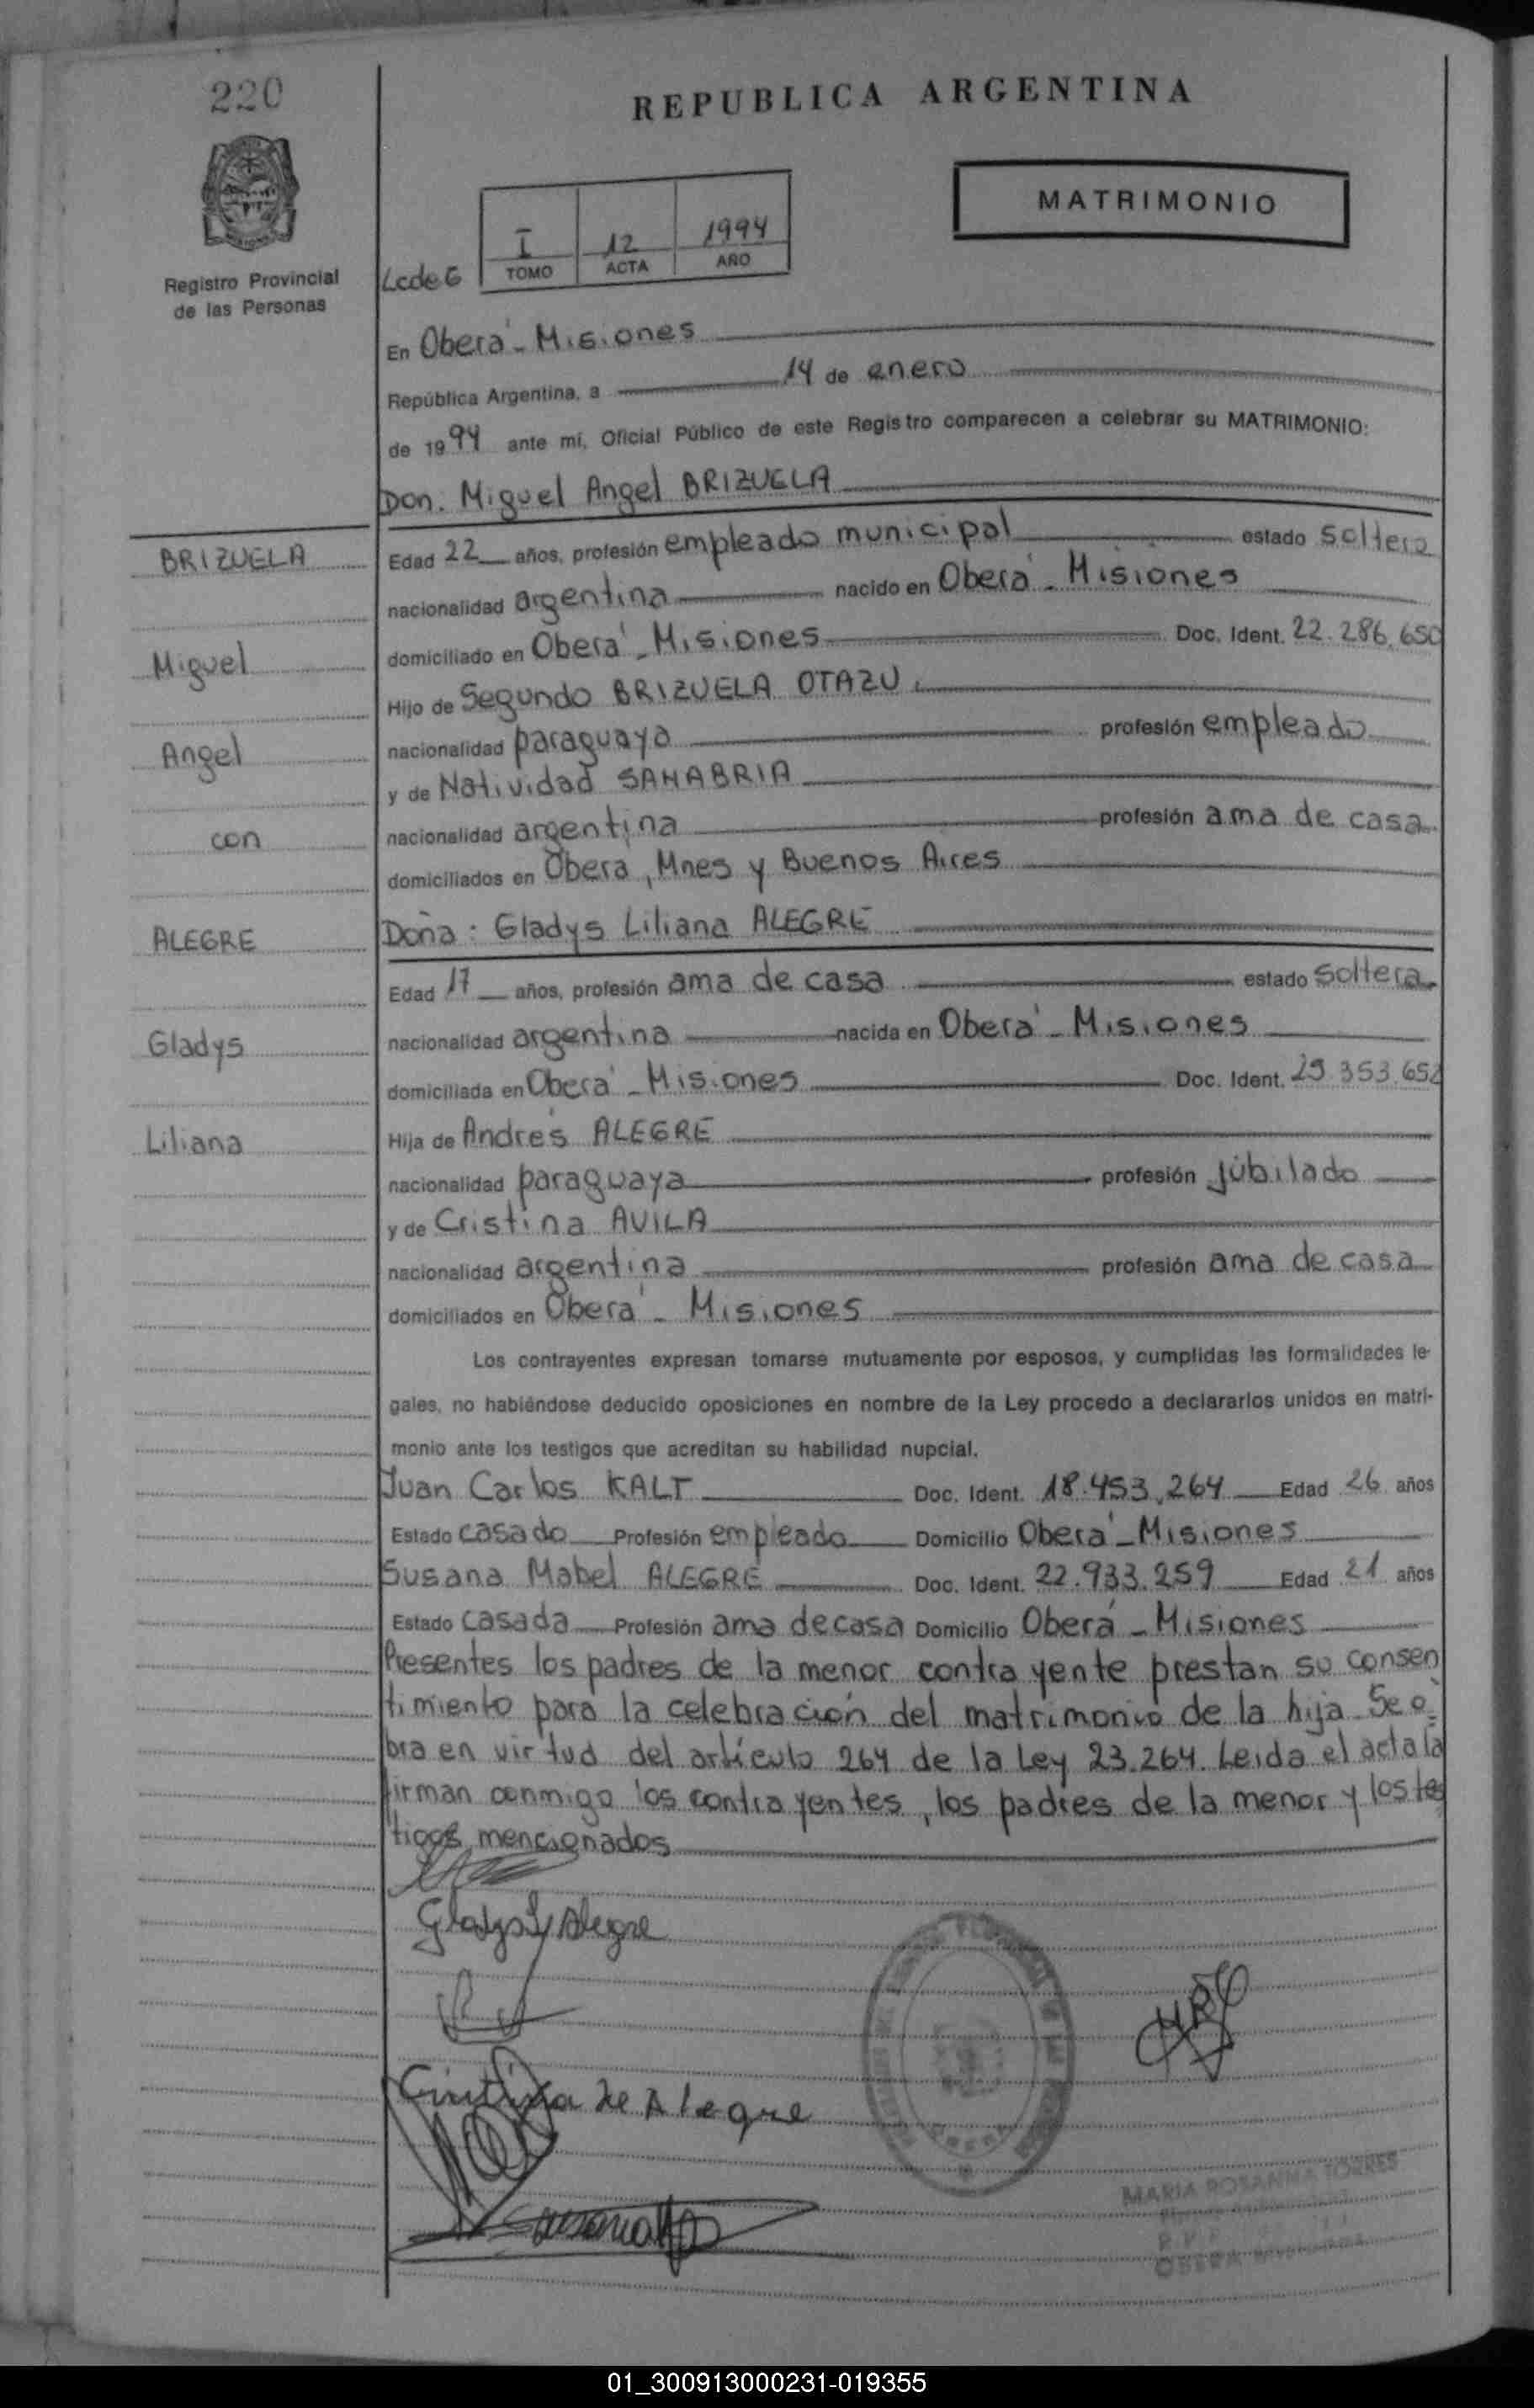 220
REPUBLICA ARGENTINA
MATRIMONIO
I 12 1994
TOMO ACTA AÑO
Registro Provincial
de las Personas
Lcde G
En Oberá - Misiones
República Argentina, a 14 de enero
de 1994 ante mí, Oficial Público de este Registro comparecen a celebrar su MATRIMONIO:
Don. Miguel Angel BRIZUELA
BRIZUELA
Edad 22 años, profesión empleado municipal estado soltero
nacionalidad argentina nacido en Oberá - Misiones
Miguel
domiciliado en Oberá - Misiones Doc. Ident. 22.286.650
Hijo de Segundo BRIZUELA OTAZU.
Angel
nacionalidad paraguaya profesión empleado
y de Natividad SANABRIA
con
nacionalidad argentina profesión ama de casa
domiciliados en Oberá, Mnes y Buenos Aires
ALEGRE
Doña: Gladys Liliana ALEGRE
Edad 17 años, profesión ama de casa estado soltera
Gladys
nacionalidad argentina nacida en Oberá - Misiones
domiciliada en Oberá - Misiones Doc. Ident. 25.353.652
Liliana
Hija de Andrés ALEGRE
nacionalidad paraguaya profesión jubilado
y de Cristina AVILA
nacionalidad argentina profesión ama de casa
domiciliados en Oberá - Misiones
Los contrayentes expresan tomarse mutuamente por esposos, y cumplidas las formalidades le-
gales, no habiéndose deducido oposiciones en nombre de la Ley procedo a declararlos unidos en matri-
monio ante los testigos que acreditan su habilidad nupcial.
Juan Carlos KALT Doc. Ident. 18.453.264 Edad 26 años
Estado casado Profesión empleado Domicilio Oberá - Misiones
Susana Mabel ALEGRE Doc. Ident. 22.933.259 Edad 21 años
Estado casada Profesión ama de casa Domicilio Oberá - Misiones
Presentes los padres de la menor contrayente prestan su consen
timiento para la celebración del matrimonio de la hija. Se o-
bra en virtud del artículo 264 de la Ley 23.264. Leida el acta la
firman conmigo los contrayentes, los padres de la menor y los tes
tigos mencionados
Gladys L Alegre
Cristina de Alegre
MARIA ROSANNA TORRES
OBERA
01_300913000231-019355